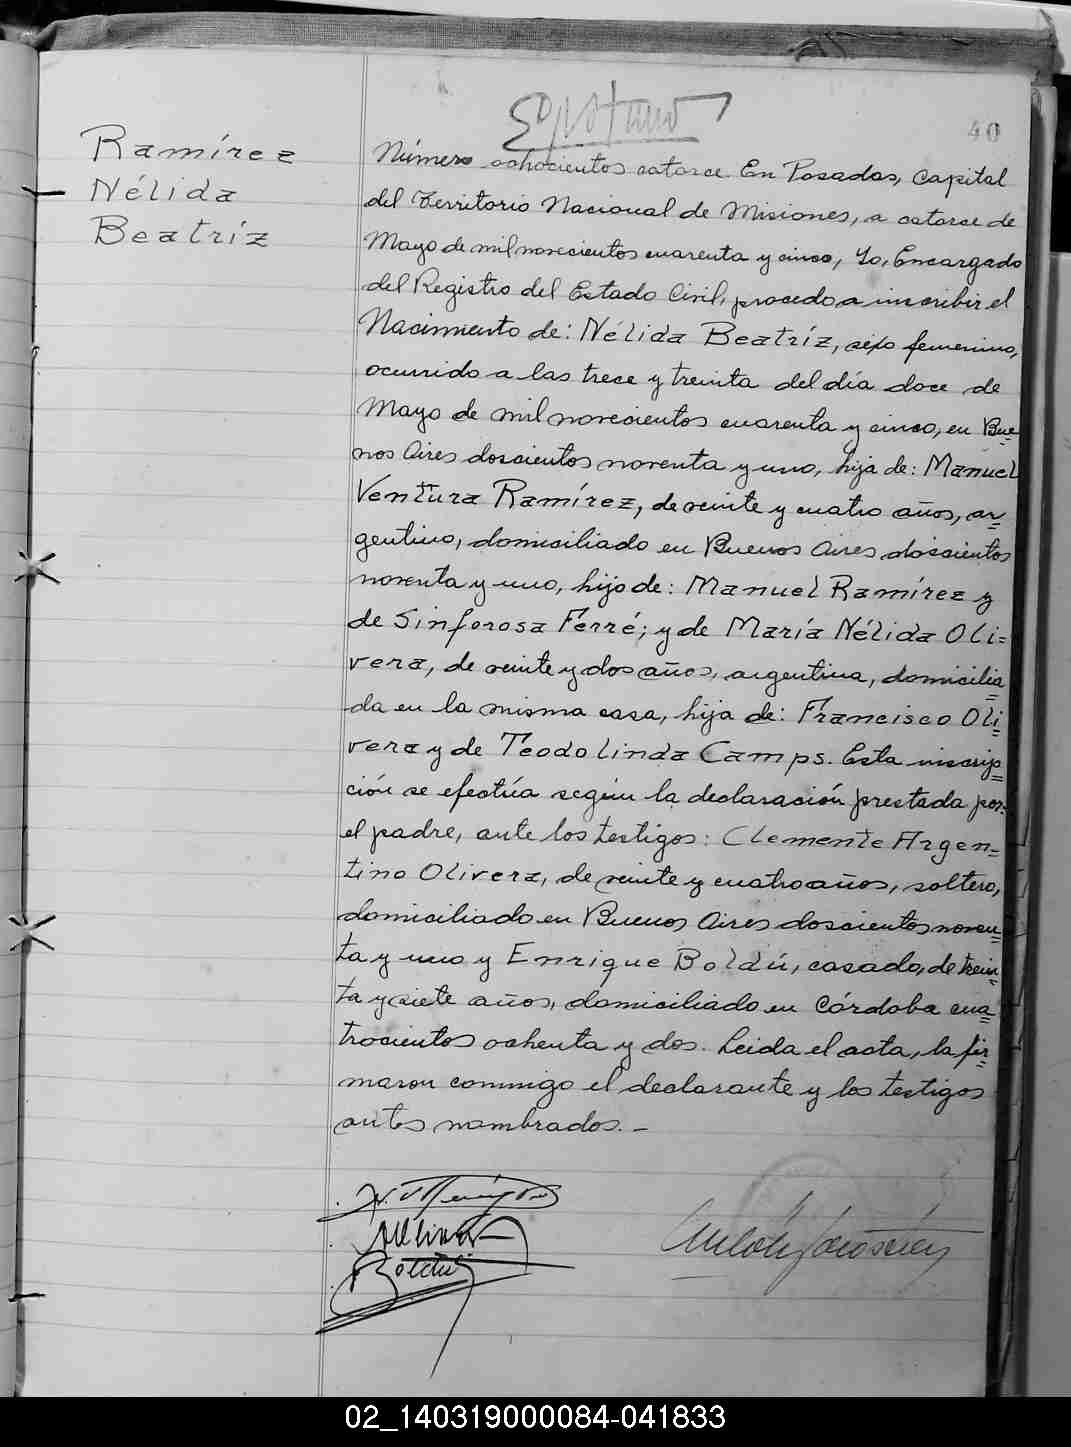 40
Ramírez
Nélida
Beatríz
Número ochocientos catorce En Posadas, Capital
del Territorio Nacional de Misiones, a catorce de
Mayo de mil novecientos cuarenta y cinco, Yo, Encargado
del Registro del Estado Civil, procedo a inscribir el
Nacimiento de: Nélida Beatríz, sexo femenino,
ocurrido a las trece y treinta del día doce de
Mayo de mil novecientos cuarenta y cinco, en Bue=
nos Aires doscientos noventa y uno, hija de: Manuel
Ventura Ramírez, de veinte y cuatro años, ar=
gentino, domiciliado en Buenos Aires doscientos
noventa y uno, hijo de: Manuel Ramírez y
de Sinforosa Ferré; y de María Nélida Oli=
vera, de veinte y dos años, argentina, domicilia=
da en la misma casa, hija de: Francisco Oli=
vera y de Teodolinda Camps. Esta inscrip=
ción se efectúa según la declaración prestada por
el padre, ante los testigos: Clemente Argen=
tino Olivera, de veinte y cuatro años, soltero,
domiciliado en Buenos Aires doscientos noven=
ta y uno y Enrique Boldú, casado, de trein=
ta y siete años, domiciliado en Córdoba cua=
trocientos ochenta y dos. Leida el acta, la fir=
maron conmigo el declarante y los testigos
antes nombrados.-
Boldú
02_140319000084-041833